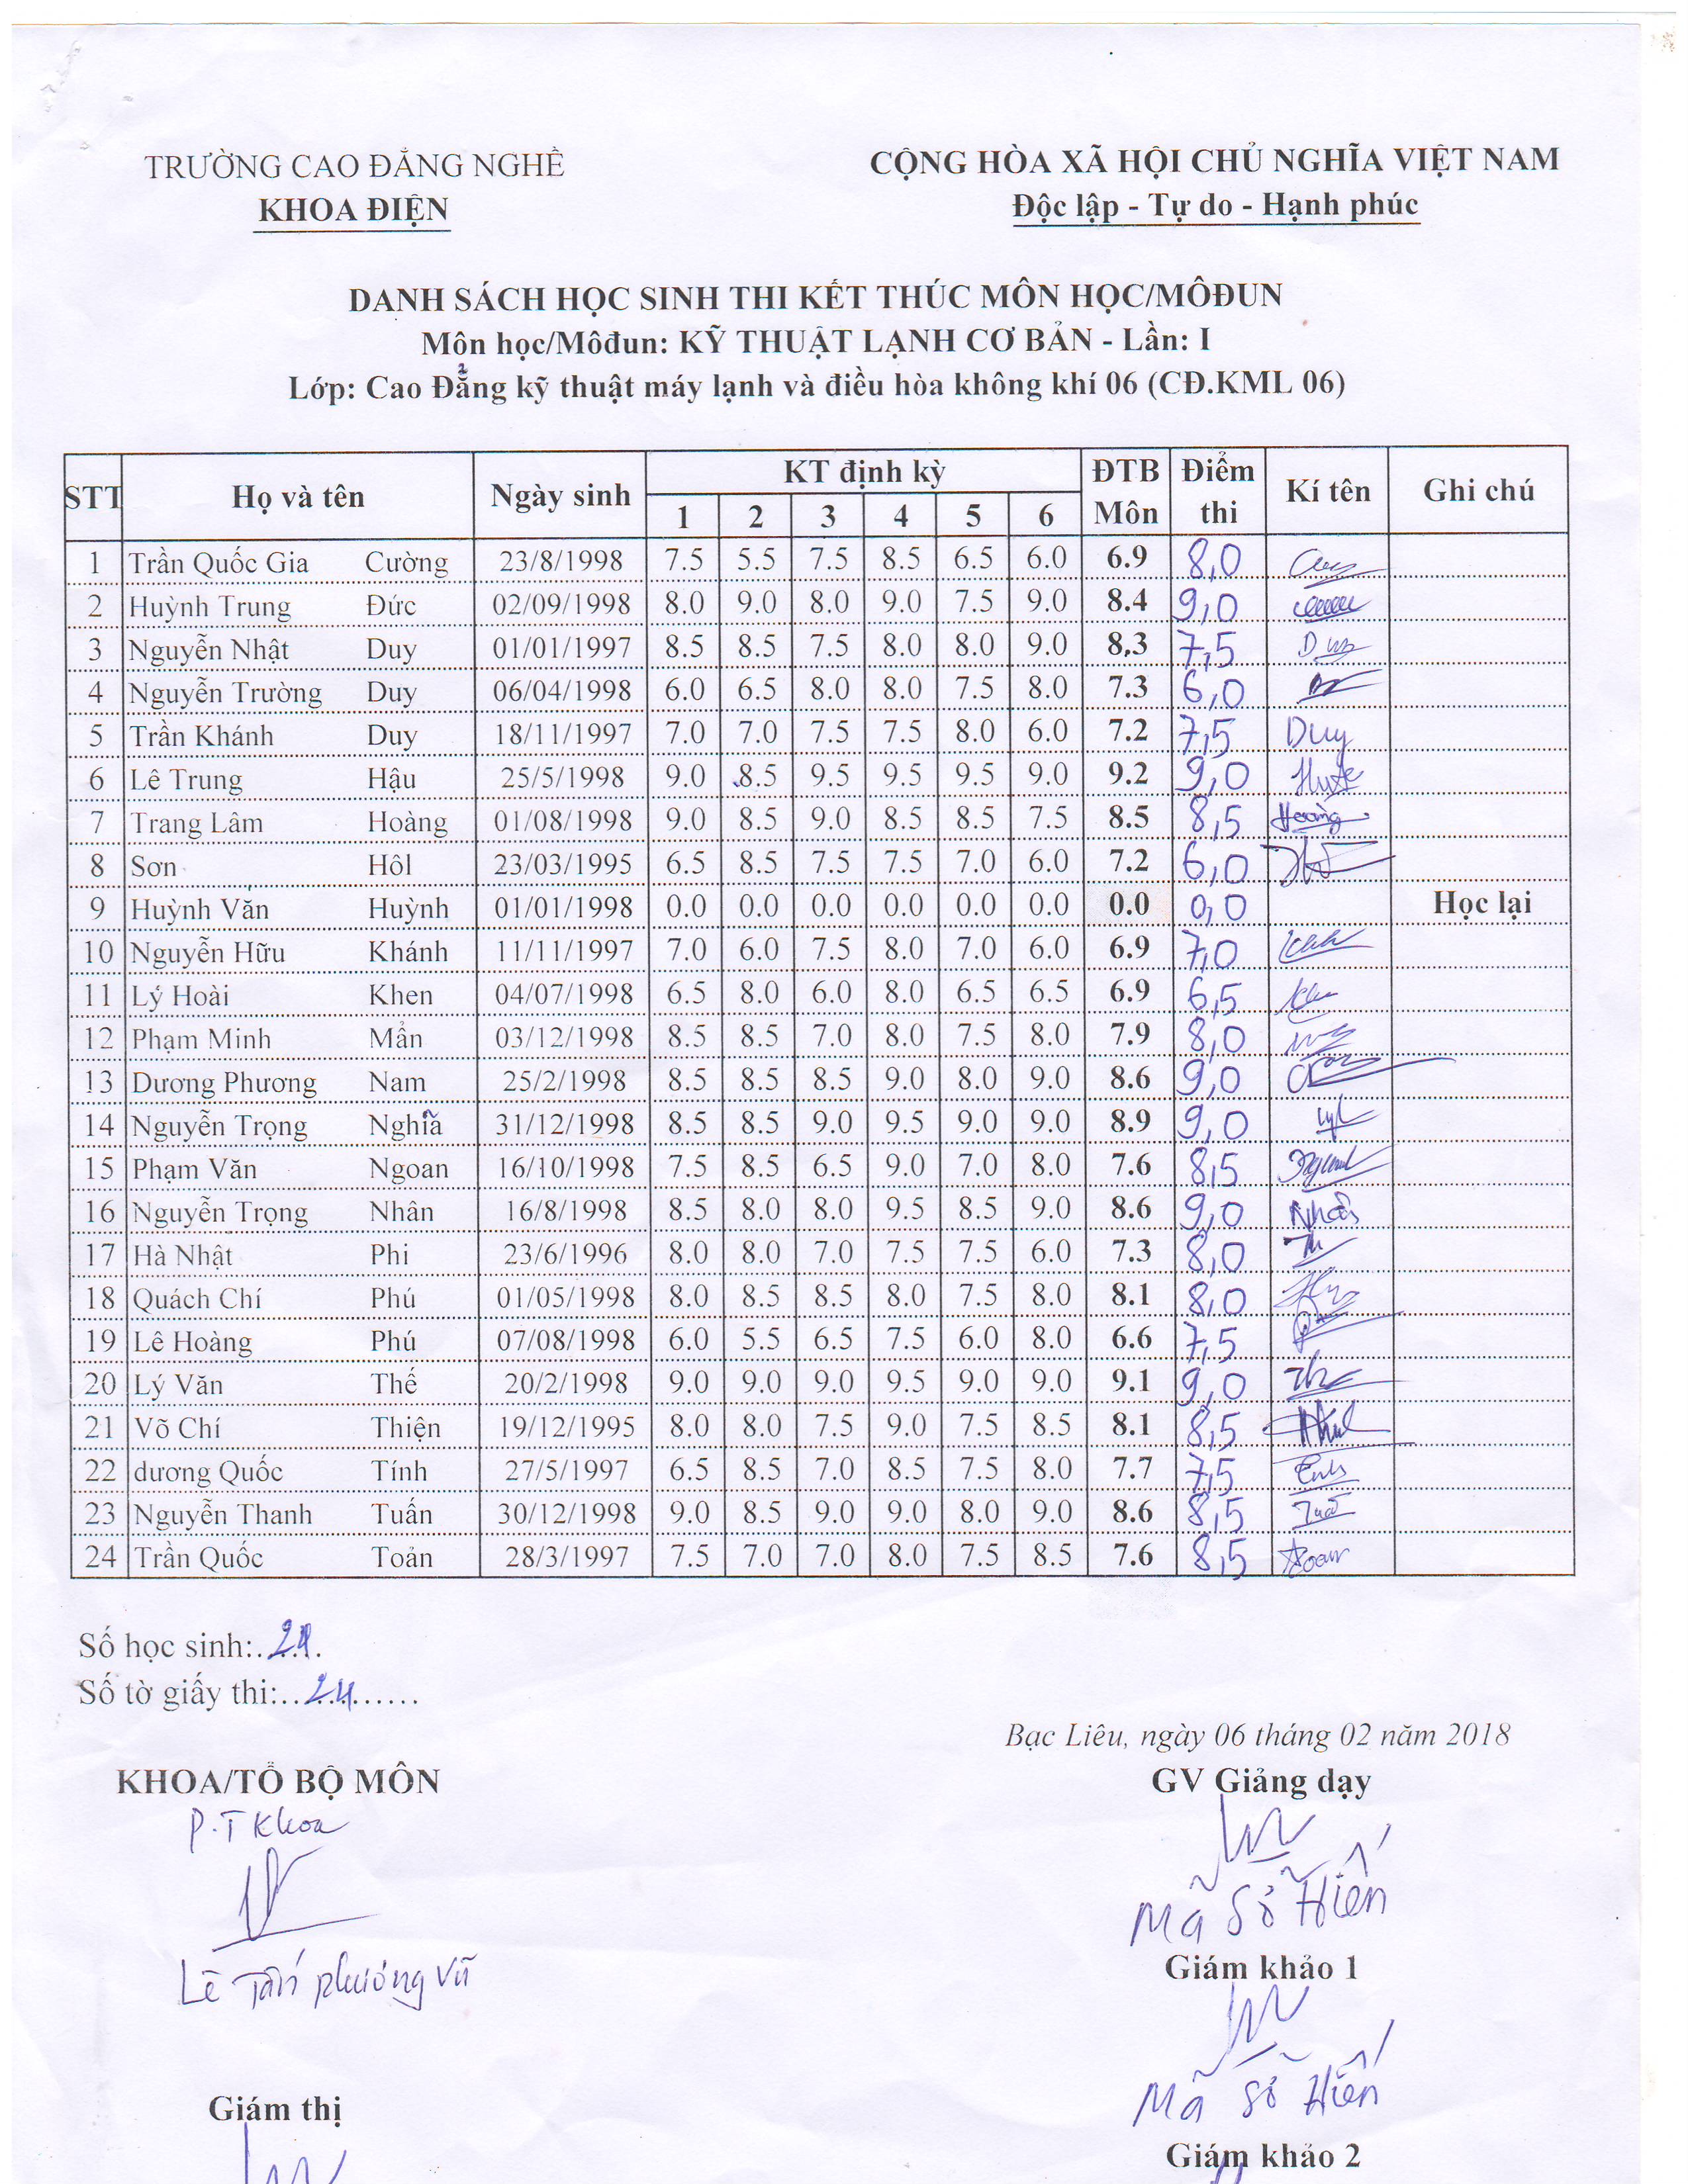 TRƯỜNG CAO ĐẲNG NGHỀ
KHOA ĐIỆN
CỘNG HÒA XÃ HỘI CHỦ NGHĨA VIỆT NAM
Độc lập - Tự do - Hạnh phúc
DANH SÁCH HỌC SINH THI KẾT THÚC MÔN HỌC/MÔĐUN
Môn học/Môđun: KỸ THUẬT LẠNH CƠ BẢN - Lần: I
Lớp: Cao Đẳng kỹ thuật máy lạnh và điều hòa không khí 06 (CĐ.KML 06)
STT Họ và tên Ngày sinh KT định kỳ ĐTB Môn Điểm thi Kí tên Ghi chú
1 2 3 4 5 6
1 Trần Quốc Gia Cường 23/8/1998 7.5 5.5 7.5 8.5 6.5 6.0 6.9 8,0
2 Huỳnh Trung Đức 02/09/1998 8.0 9.0 8.0 9.0 7.5 9.0 8.4 9,0
3 Nguyễn Nhật Duy 01/01/1997 8.5 8.5 7.5 8.0 8.0 9.0 8,3 7,5
4 Nguyễn Trường Duy 06/04/1998 6.0 6.5 8.0 8.0 7.5 8.0 7.3 6,0
5 Trần Khánh Duy 18/11/1997 7.0 7.0 7.5 7.5 8.0 6.0 7.2 7,5 Duy
6 Lê Trung Hậu 25/5/1998 9.0 8.5 9.5 9.5 9.5 9.0 9.2 9,0
7 Trang Lâm Hoàng 01/08/1998 9.0 8.5 9.0 8.5 8.5 7.5 8.5 8,5 Hoàng
8 Sơn Hôl 23/03/1995 6.5 8.5 7.5 7.5 7.0 6.0 7.2 6,0
9 Huỳnh Văn Huỳnh 01/01/1998 0.0 0.0 0.0 0.0 0.0 0.0 0.0 0,0 Học lại
10 Nguyễn Hữu Khánh 11/11/1997 7.0 6.0 7.5 8.0 7.0 6.0 6.9 7,0
11 Lý Hoài Khen 04/07/1998 6.5 8.0 6.0 8.0 6.5 6.5 6.9 6,5
12 Phạm Minh Mẩn 03/12/1998 8.5 8.5 7.0 8.0 7.5 8.0 7.9 8,0
13 Dương Phương Nam 25/2/1998 8.5 8.5 8.5 9.0 8.0 9.0 8.6 9,0
14 Nguyễn Trọng Nghĩa 31/12/1998 8.5 8.5 9.0 9.5 9.0 9.0 8.9 9,0
15 Phạm Văn Ngoan 16/10/1998 7.5 8.5 6.5 9.0 7.0 8.0 7.6 8,5
16 Nguyễn Trọng Nhân 16/8/1998 8.5 8.0 8.0 9.5 8.5 9.0 8.6 9,0 Nhân
17 Hà Nhật Phi 23/6/1996 8.0 8.0 7.0 7.5 7.5 6.0 7.3 8,0
18 Quách Chí Phú 01/05/1998 8.0 8.5 8.5 8.0 7.5 8.0 8.1 8,0
19 Lê Hoàng Phú 07/08/1998 6.0 5.5 6.5 7.5 6.0 8.0 6.6 7,5
20 Lý Văn Thế 20/2/1998 9.0 9.0 9.0 9.5 9.0 9.0 9.1 9,0
21 Võ Chí Thiện 19/12/1995 8.0 8.0 7.5 9.0 7.5 8.5 8.1 8,5
22 dương Quốc Tính 27/5/1997 6.5 8.5 7.0 8.5 7.5 8.0 7.7 7,5
23 Nguyễn Thanh Tuấn 30/12/1998 9.0 8.5 9.0 9.0 8.0 9.0 8.6 8,5
24 Trần Quốc Toản 28/3/1997 7.5 7.0 7.0 8.0 7.5 8.5 7.6 8,5
Số học sinh:..24..
Số tờ giấy thi:...24.........
Bạc Liêu, ngày 06 tháng 02 năm 2018
KHOA/TỔ BỘ MÔN
GV Giảng dạy
P.T Khoa
Mã Sỉ Hiến
Lê Tấn Phương Vũ
Giám khảo 1
Mã Sỉ Hiến
Giám thị
Giám khảo 2